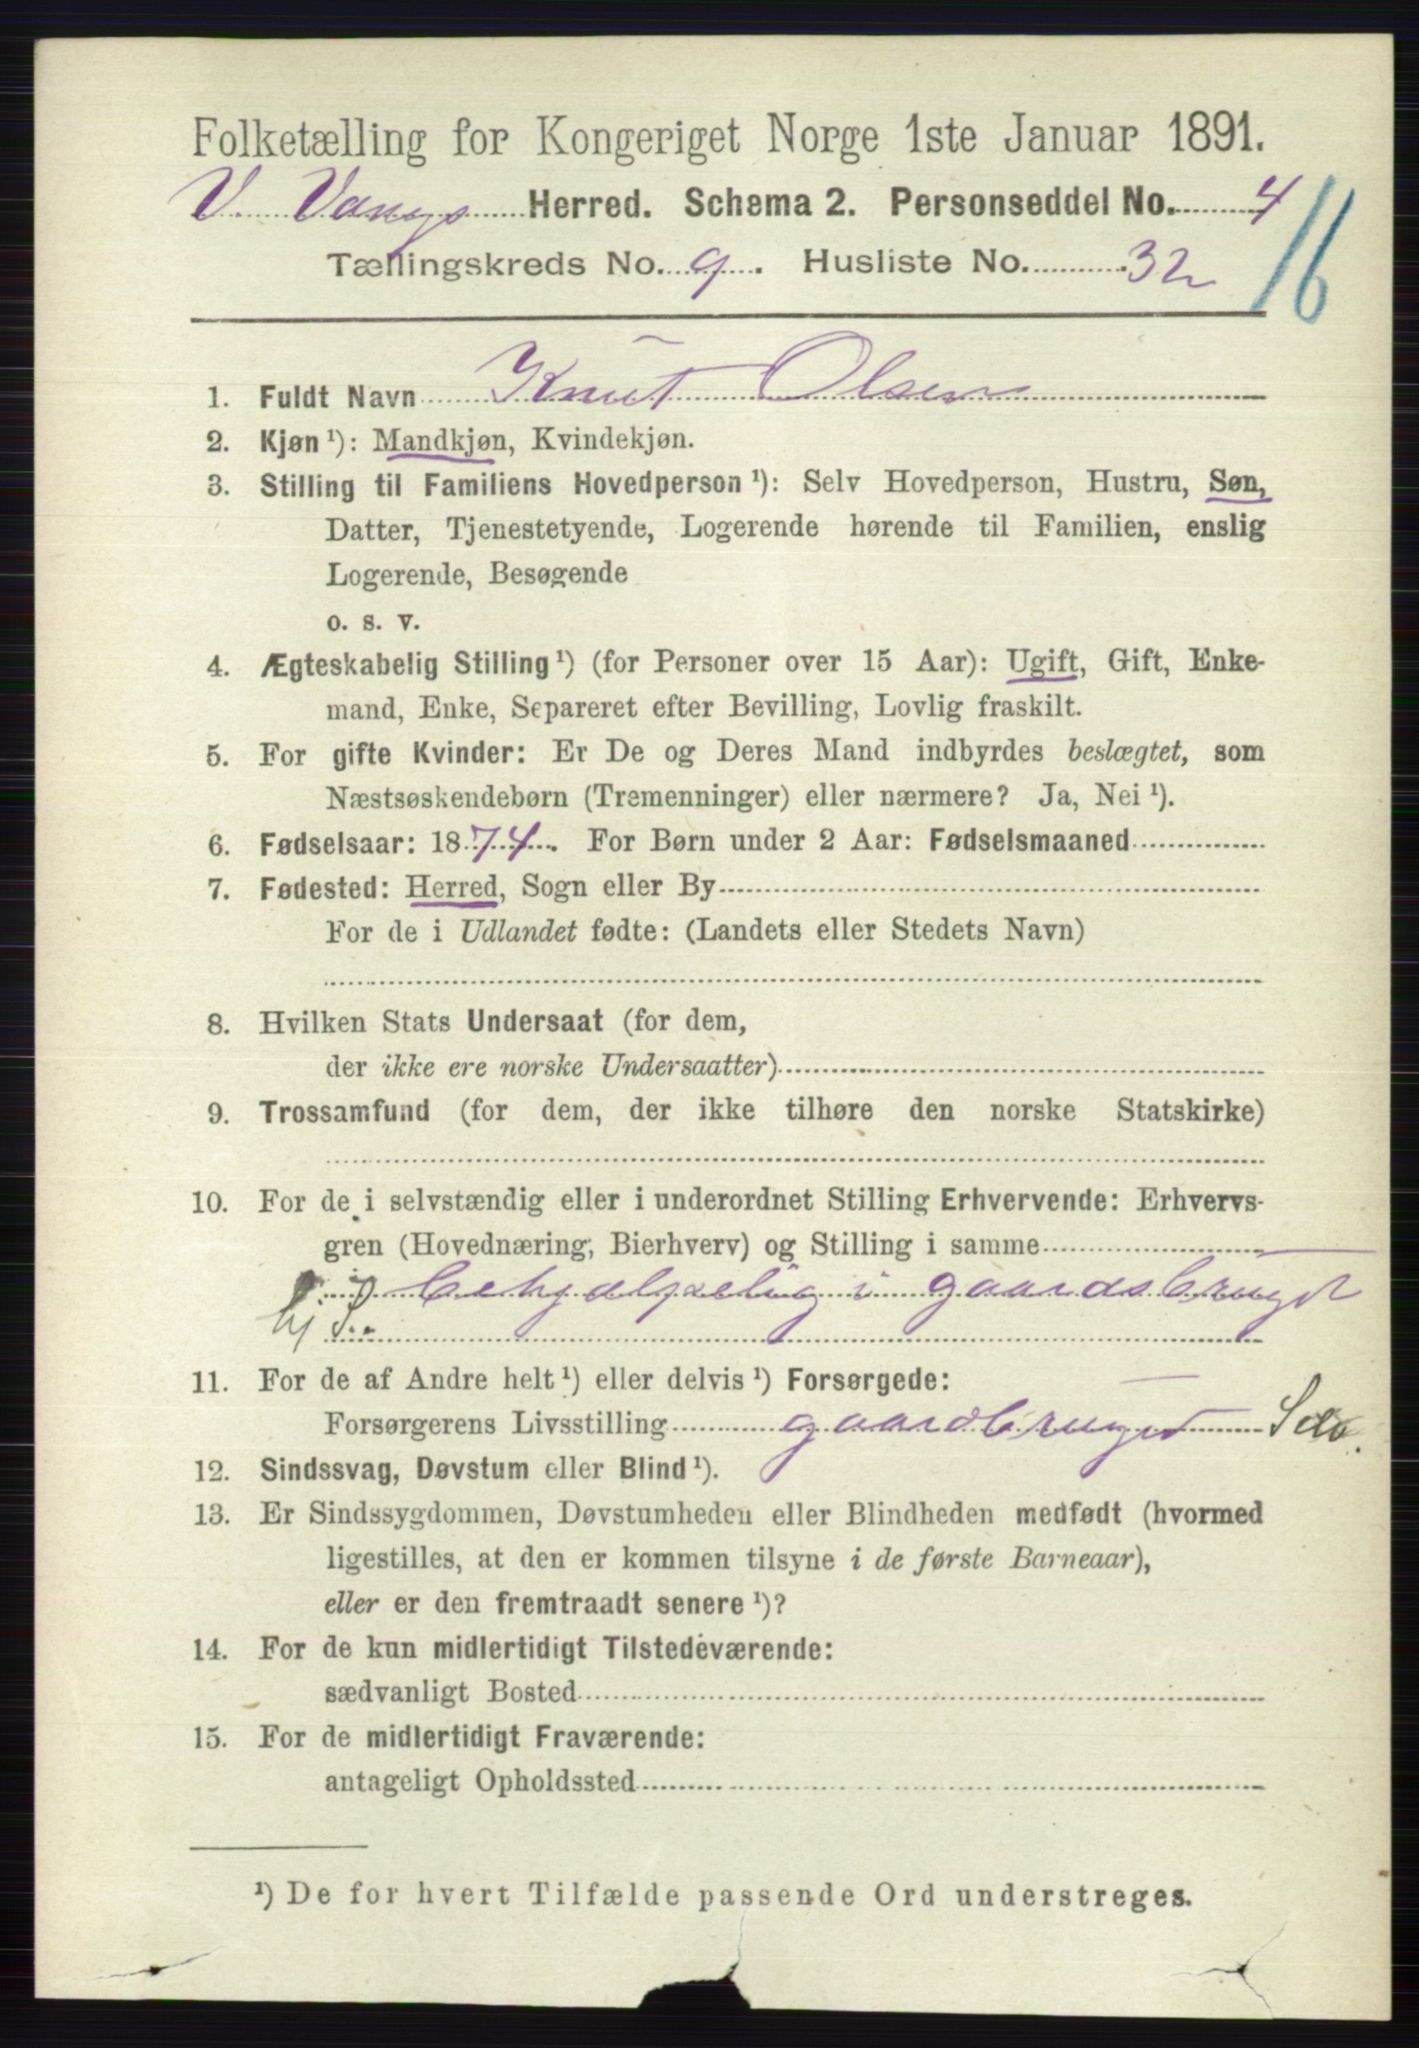 Folketælling for Kongeriget Norge 1ste Januar 1891.
V. Vangs Herred. Schema 2. Personseddel No. 4
Tællingskreds No. 9. Husliste No. 32
16
1. Fuldt Navn Knut Olsen
2. Kjøn ¹): Mandkjøn, Kvindekjøn.
3. Stilling til Familiens Hovedperson ¹): Selv Hovedperson, Hustru, Søn,
Datter, Tjenestetyende, Logerende hørende til Familien, enslig
Logerende, Besøgende
o. s. v.
4. Ægteskabelig Stilling ¹) (for Personer over 15 Aar): Ugift, Gift, Enke-
mand, Enke, Separeret efter Bevilling, Lovlig fraskilt.
5. For gifte Kvinder: Er De og Deres Mand indbyrdes beslægtet, som
Næstsøskendebørn (Tremenninger) eller nærmere? Ja, Nei ¹).
6. Fødselsaar: 1874. For Børn under 2 Aar: Fødselsmaaned
7. Fødested: Herred, Sogn eller By
For de i Udlandet fødte: (Landets eller Stedets Navn)
8. Hvilken Stats Undersaat (for dem,
der ikke ere norske Undersaatter)
9. Trossamfund (for dem, der ikke tilhøre den norske Statskirke)
10. For de i selvstændig eller i underordnet Stilling Erhvervende: Erhvervs-
gren (Hovednæring, Bierhverv) og Stilling i samme
behjælpelig i gaardsbruget
11. For de af Andre helt ¹) eller delvis ¹) Forsørgede:
Forsørgerens Livsstilling gaardbruger
12. Sindssvag, Døvstum eller Blind ¹).
13. Er Sindssygdommen, Døvstumheden eller Blindheden medfødt (hvormed
ligestilles, at den er kommen tilsyne i de første Barneaar),
eller er den fremtraadt senere ¹)?
14. For de kun midlertidigt Tilstedeværende:
sædvanligt Bosted
15. For de midlertidigt Fraværende:
antageligt Opholdssted
¹) De for hvert Tilfælde passende Ord understreges.